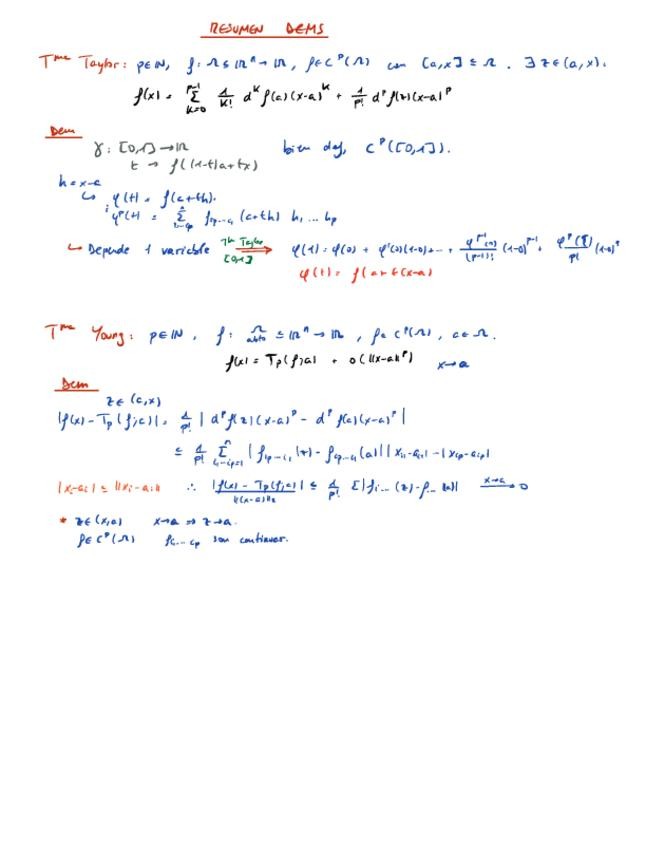 RESUMEN DEMS
Tma Taylor: p∈ℕ, f: Ω ⊆ ℝⁿ → ℝ, f∈Cᵖ(Ω) con [a,x] ⊆ Ω. ∃ z∈(a,x).
f(x) = Σ_{k=0}^{p-1} 1/k! dᵏf(a)(x-a)ᵏ + 1/p! dᵖf(z)(x-a)ᵖ
Dem
γ: [0,1] → ℝ bien def, Cᵖ([0,1]).
t → f((1-t)a+tx)
h = x-a
↳ φ(t) = f(a+th).
φᵖ(t) = Σ f_{ip...i1}(a+th) h, ... hp
↳ Depende 1 variable Th Taylor [0,1] → φ(1) = φ(0) + φ'(0)(1-0) + ... + φ^{p-1}(0)/(p-1)! (1-0)^{p-1} + φᵖ(ξ)/p! (1-0)ᵖ
φ(t) = f(a+t(x-a)
Tma Young: p∈ℕ, f: Ω abto ⊆ ℝⁿ → ℝ, f∈Cᵖ(Ω), a∈Ω.
f(x) = Tp(f;a) + o(||x-a||ᵖ) x→a
Dem
z∈(a,x)
|f(x) - Tp(f;a)| = 1/p! | dᵖf(z)(x-a)ᵖ - dᵖf(a)(x-a)ᵖ |
≤ 1/p! Σ_{i1...ip=1}^{n} | f_{ip...i1}(z) - f_{ip...i1}(a)| | x_{i1}-a_{i1}| ... |x_{ip}-a_{ip}|
|xi-ai| ≤ ||xi-ai|| ∴ |f(x) - Tp(f;a)| / ||(x-a)||ᵖ ≤ 1/p! Σ|fi...(z)-f...(a)| x→a → 0
* z∈(x,a) x→a ⇒ z→a.
f∈Cᵖ(Ω) f_{i1...ip} son continuas.